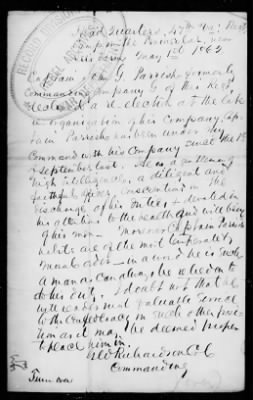 Head Quarters 47th Va. Regt
Camp on the Peninsula, near
May 1st 1862
Captain Jno G. Parrish formerly
Commanding Company G of this Regt
declined a re-election at the late
re organization of his company. Cap-
tain Parrish has been under my
Command with his Company since the 1st
September last. He is a gentleman of
high intelligence, a diligent and
faithful officer, conscientious in the
discharge of his duties, & devoted in
his attention to the health and well being
of his men. Moreover Captain Parrish
habits are of the most temperate &
moral order — in a word he is such
a man as can always be relied on to
do his duty. I doubt not that he
will render most valuable service
to the Confederacy in such other posi-
tion as it may be deemed proper
to place him in.
Richardson Col
Commanding
Turn over